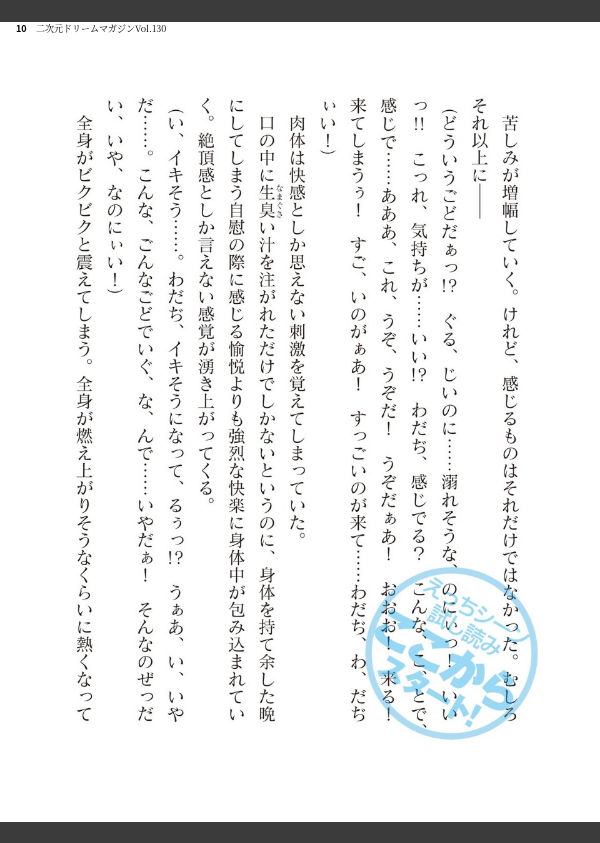 10 二次元ドリームマガジンVol.130
苦しみが増幅していく。けれど、感じるものはそれだけではなかった。むしろ
それ以上に――
(どういうごどだぁっ!? ぐる、じいのに……溺れそうな、のにぃっ! いい
っ!! こっれ、気持ちが……いい!? わだぢ、感じでる? こんな、こ、とで、
感じで……あああ、これ、うぞ、うぞだ! うぞだぁあ! おおお! 来る!
来てしまうぅ! すご、いのがぁあ! すっごいのが来て……わだぢ、わ、だぢ
ぃい!)
肉体は快感としか思えない刺激を覚えてしまっていた。
口の中に生臭い汁を注がれただけでしかないというのに、身体を持て余した晩
なまぐさ
にしてしまう自慰の際に感じる愉悦よりも強烈な快楽に身体中が包み込まれてい
く。絶頂感としか言えない感覚が湧き上がってくる。
(い、イキそう……。わだぢ、イキそうになって、るぅっ!? うぁあ、い、いや
だ……。こんな、ごんなごどでいぐ、な、んで……いやだぁ! そんなのぜっだ
い、いや、なのにぃい!)
全身がビクビクと震えてしまう。全身が燃え上がりそうなくらいに熱くなって
えっちシーン
試し読み
ここから
スタート!